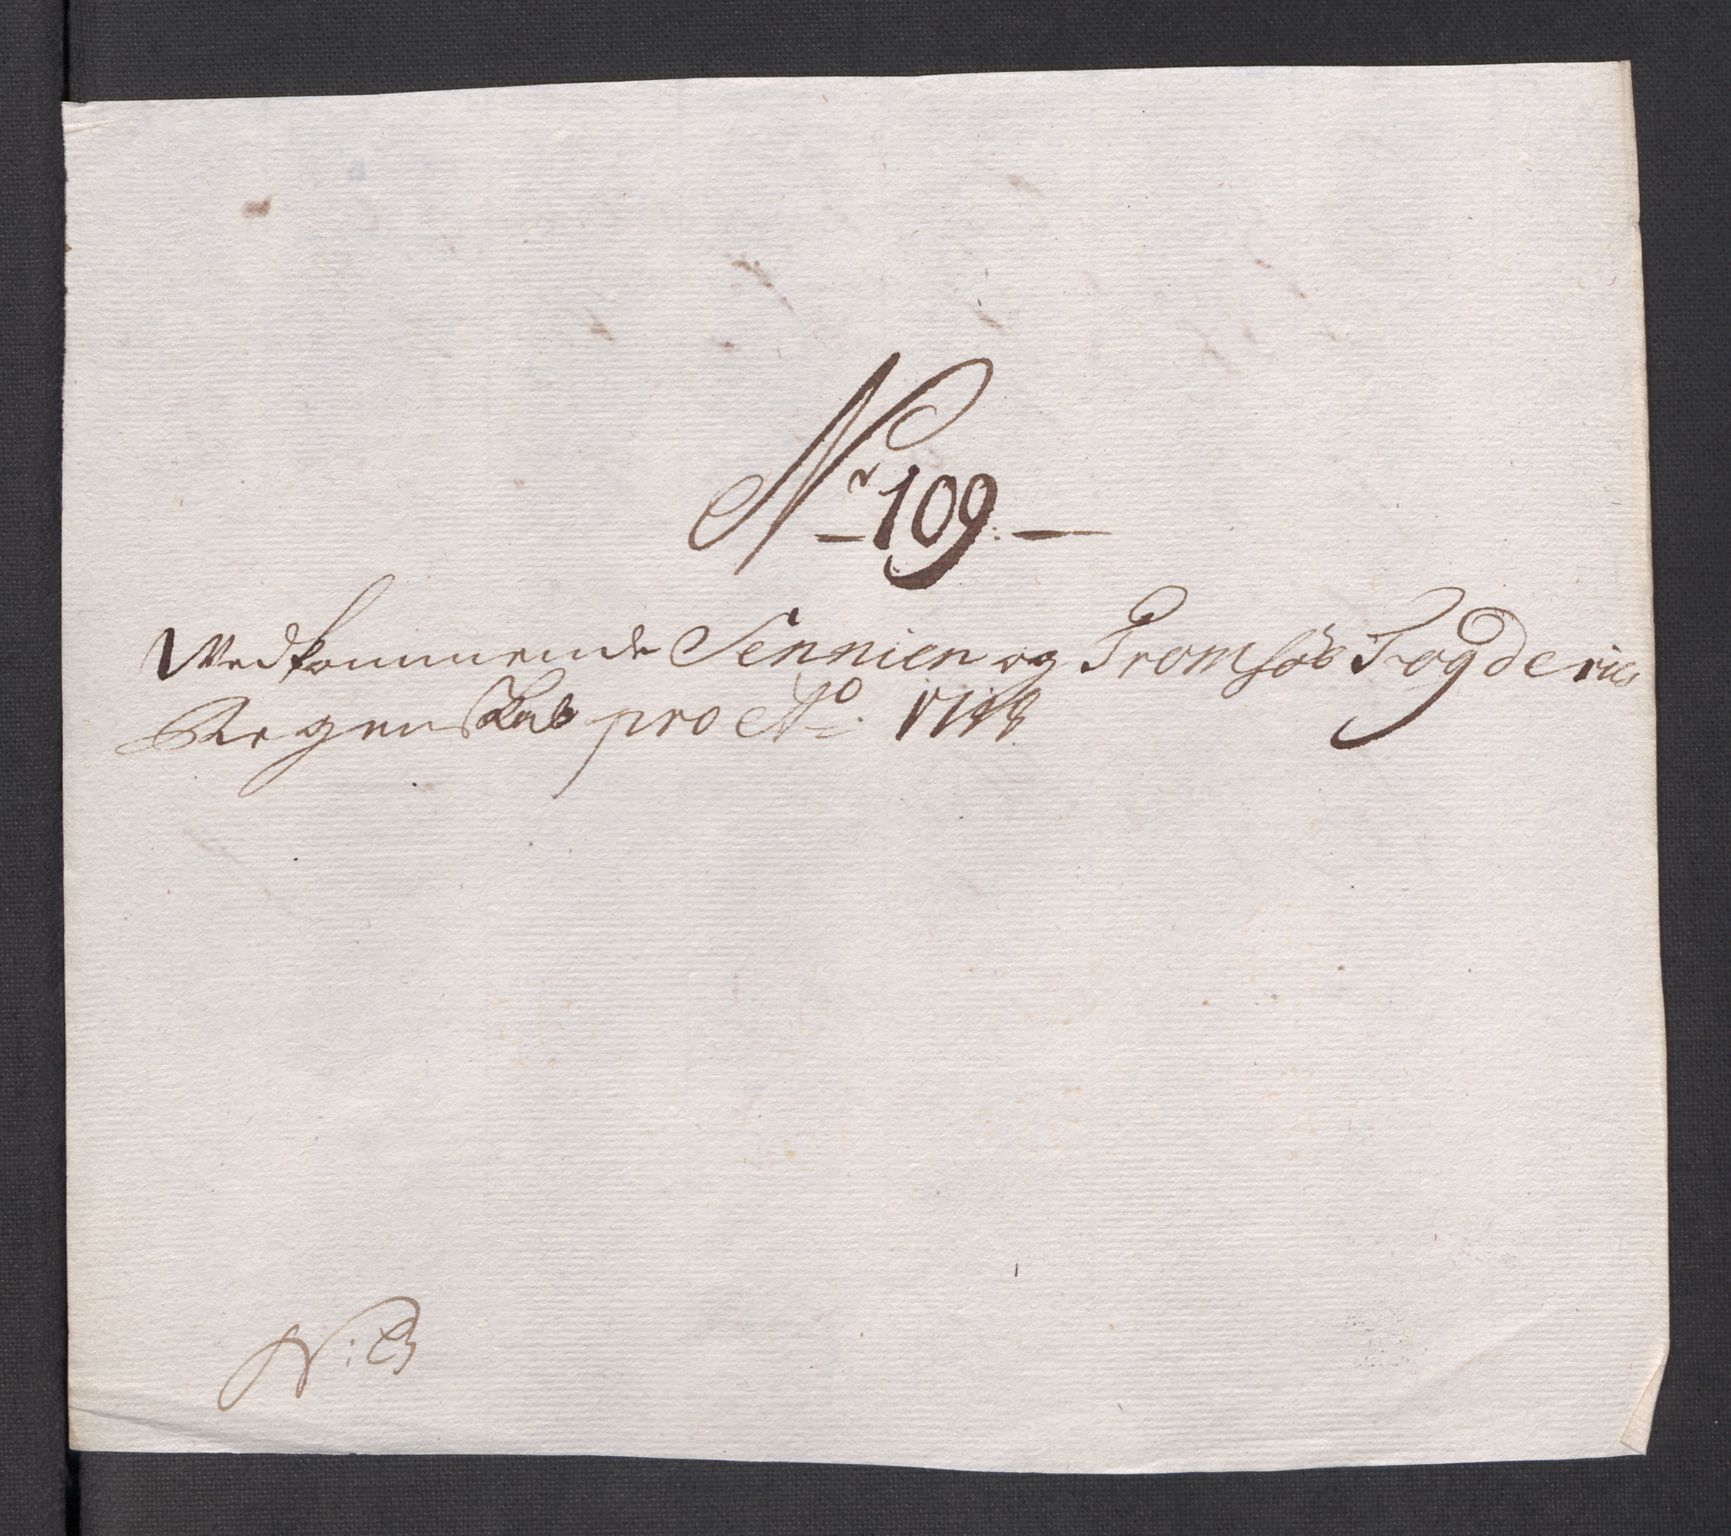 Nr 109.
Vedkommende Sennien og Tromsøe Fogderies
Regenskab pro Ao. 1718
N:B